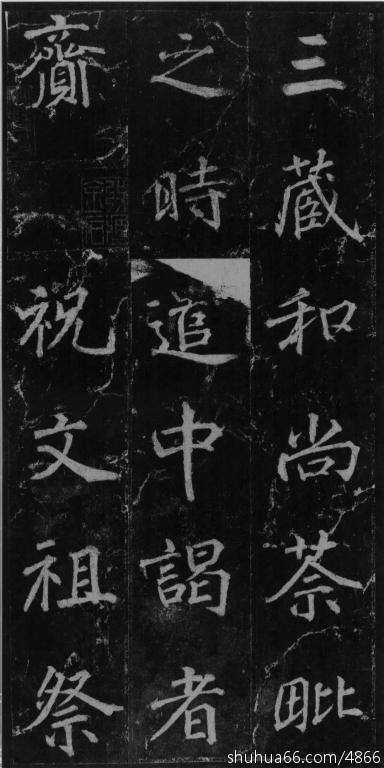 三藏和尚荼毗
之時遣中謁者
齎祝文祖祭
shuhua66.com/4866